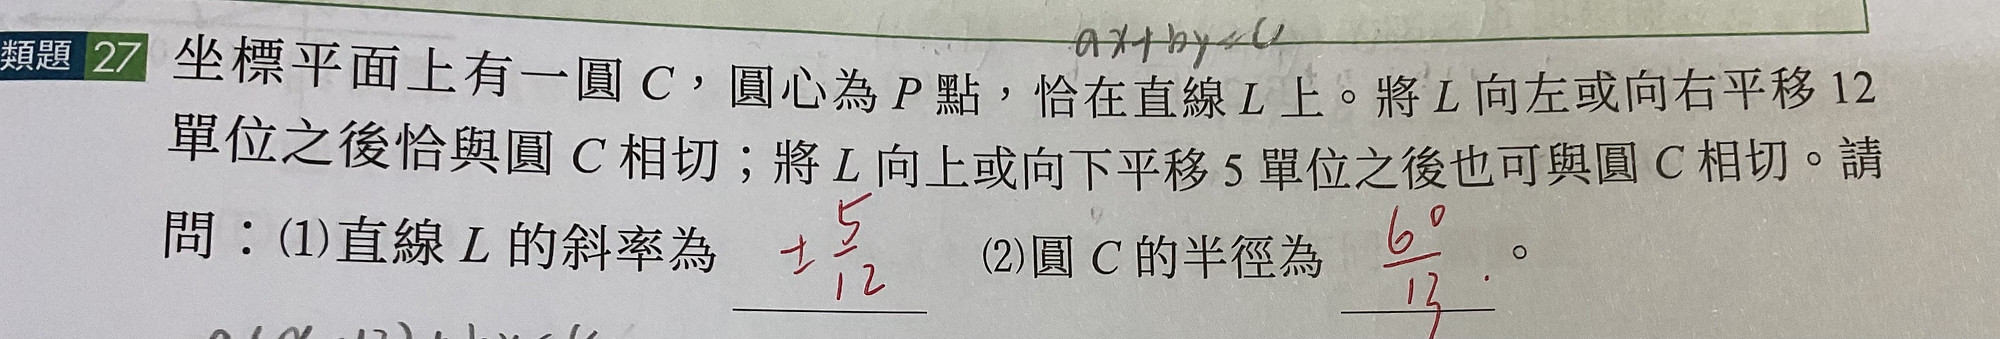 ax+by=c
類題 27 坐標平面上有一圓 C，圓心為 P 點，恰在直線 L 上。將 L 向左或向右平移 12
單位之後恰與圓 C 相切；將 L 向上或向下平移 5 單位之後也可與圓 C 相切。請
問：⑴直線 L 的斜率為 ±5/12 ⑵圓 C 的半徑為 60/13 。